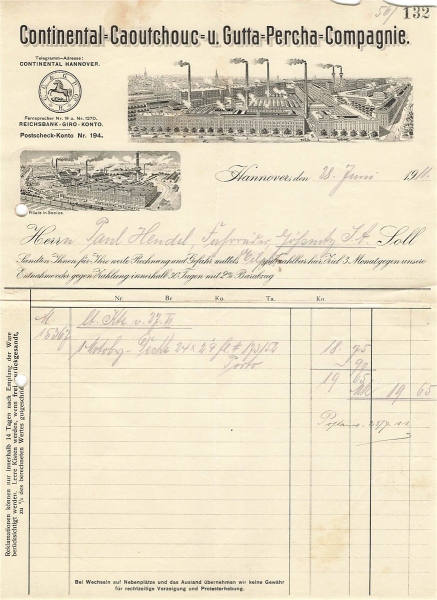 132
Continental-Caoutchouc- u. Gutta-Percha-Compagnie.
Telegramm-Adresse:
CONTINENTAL HANNOVER.
Fernsprecher Nr. 19 u. Nr. 1270.
REICHSBANK-GIRO-KONTO.
Postscheck-Konto Nr. 194.
Filiale in Seelze.
Hannover, den 28. Juni 1911.
Herrn Paul Hendel, Gössnitz S.A. Soll
Sandten Ihnen für Ihre werte Rechnung und Gefahr mittels zahlbar hier Ziel 3 Monat gegen unsere
Entnahme oder gegen Zahlung innerhalb 30 Tagen mit 2% Barabzug
Nr. Br. Ko. Ta. Ko.
M
v. 27. VI
1 Motoby- 24 x 2 1/4
18 95
Porto
19 65
19 65
Reklamationen können nur innerhalb 14 Tagen nach Empfang der Ware
berücksichtigt werden. Leere Kisten werden, wenn frei zurückgesandt,
zu 2/3 des berechneten Wertes gutgeschrieben
Bei Wechseln auf Nebenplätze und das Ausland übernehmen wir keine Gewähr
für rechtzeitige Vorzeigung und Protesterhebung.